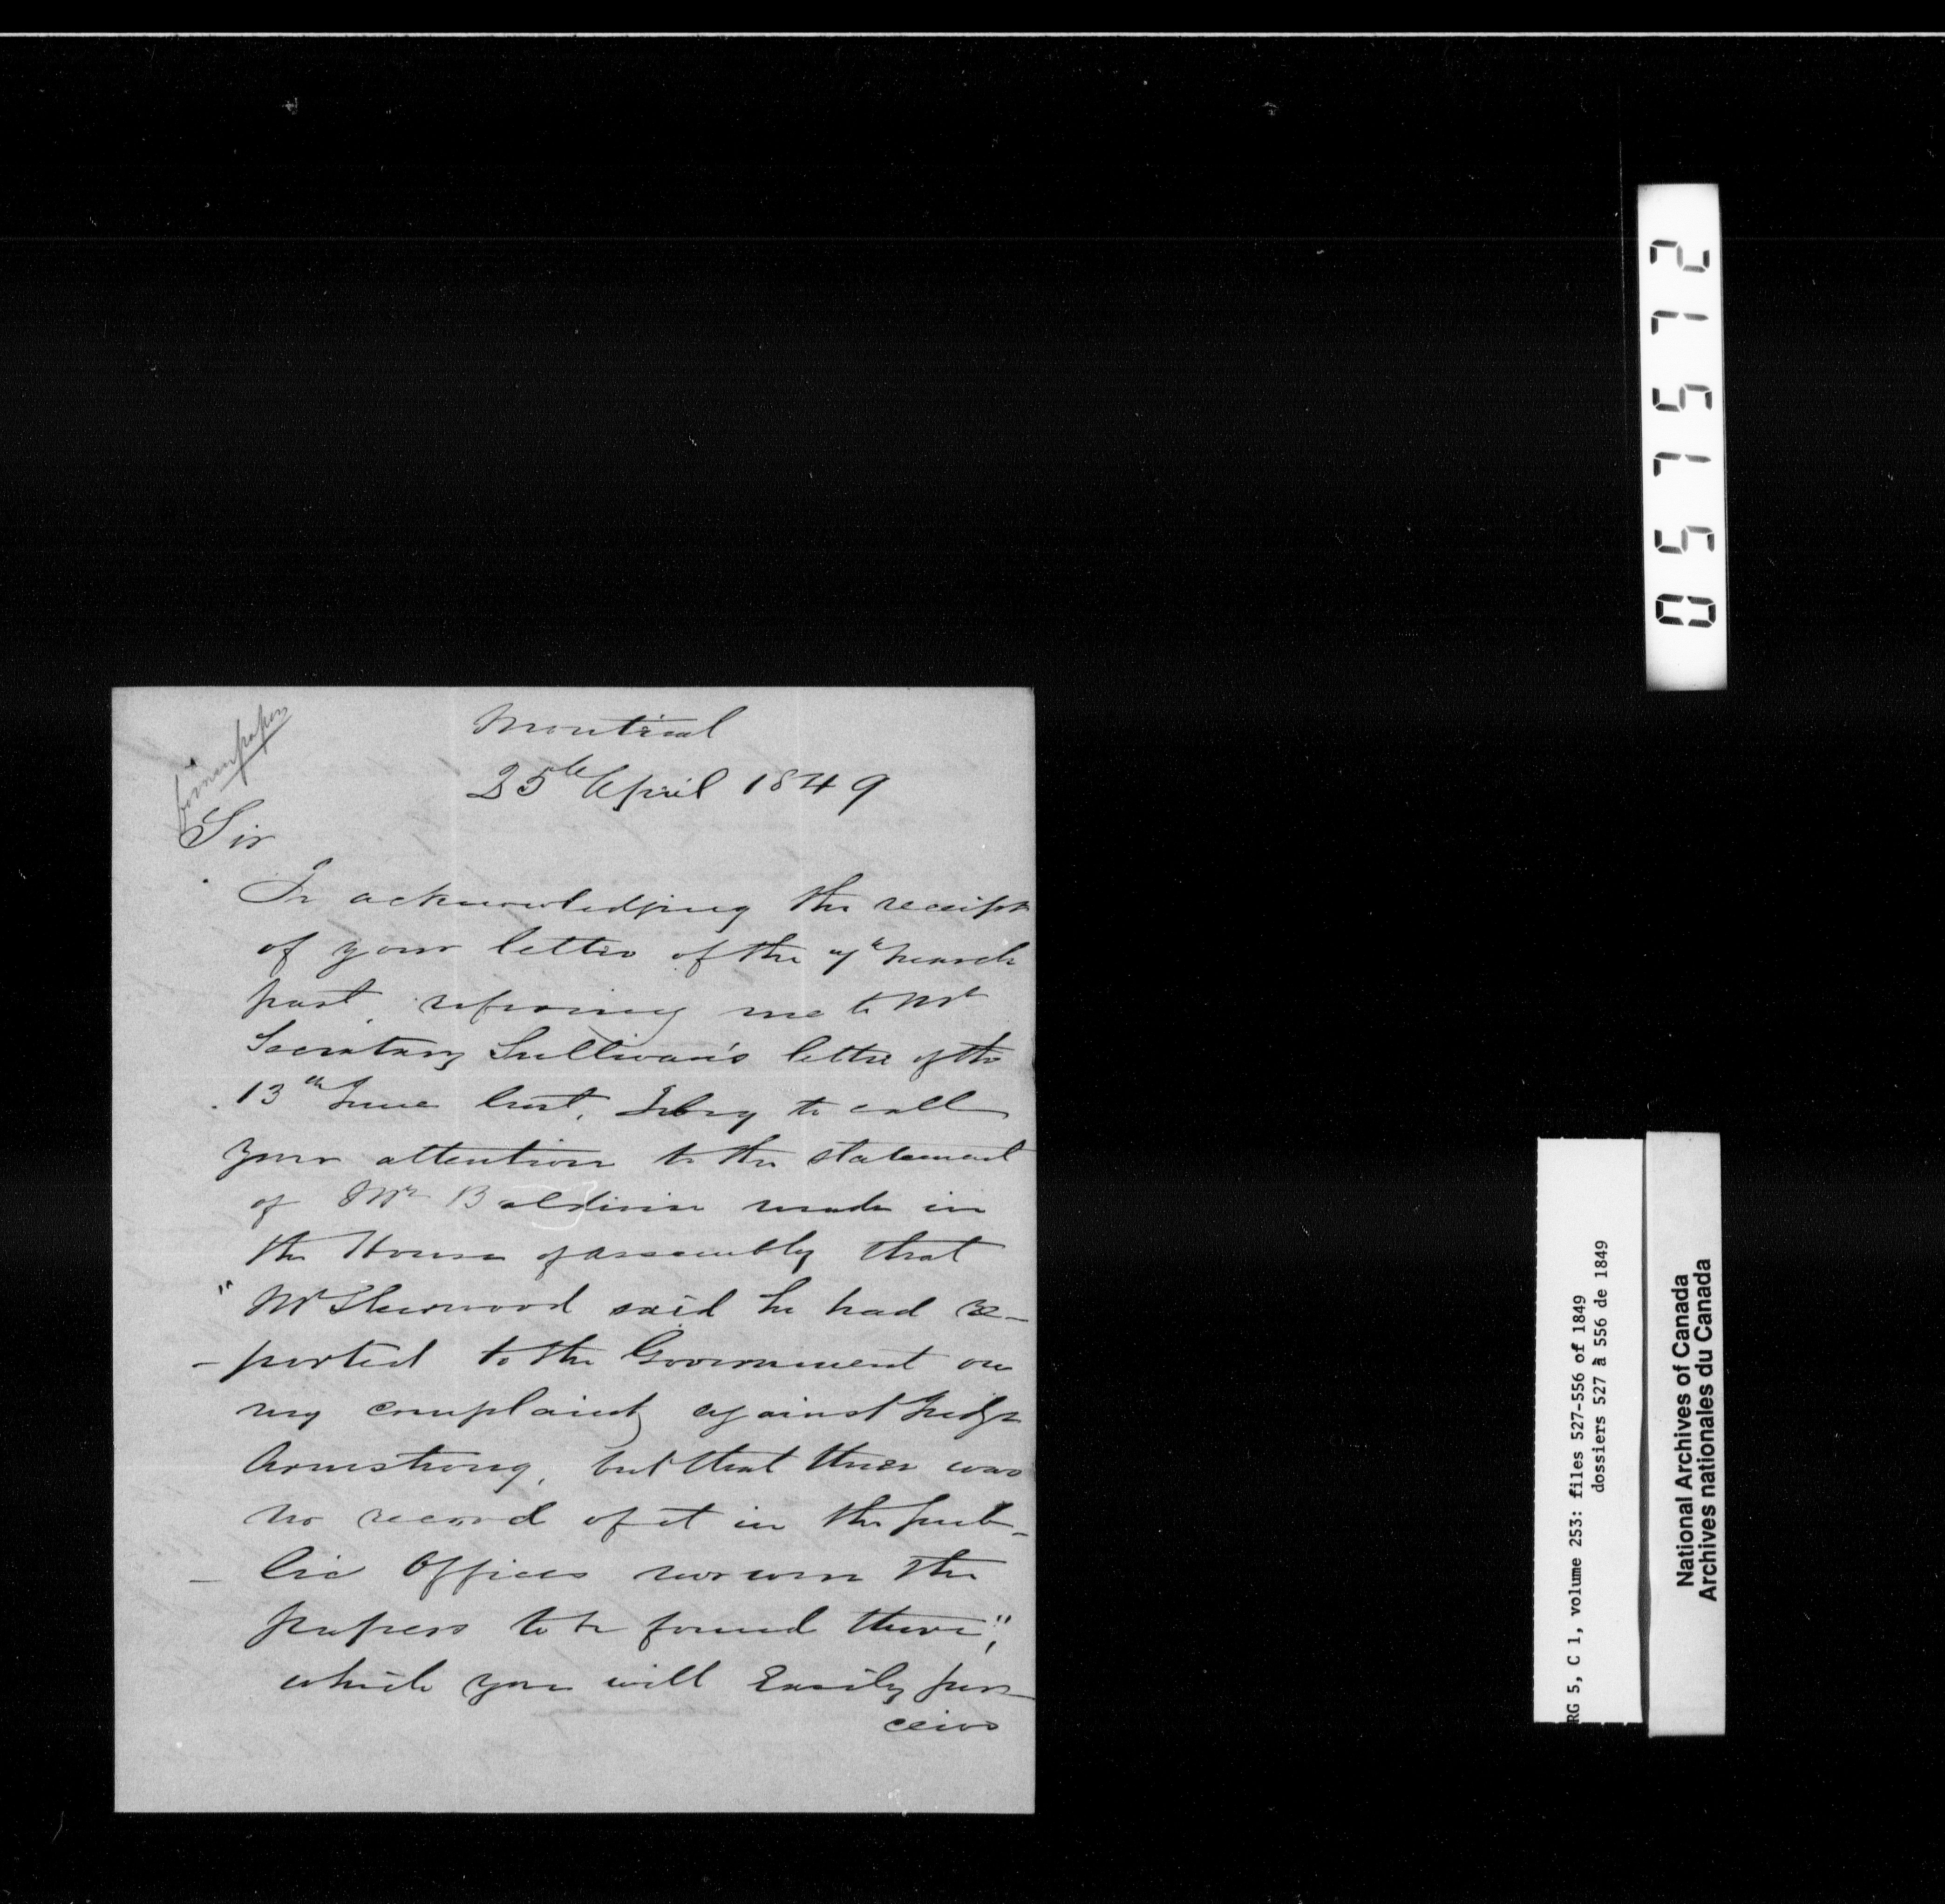 former papers
Montreal
25th April 1849
Sir
In acknowledging the receipt
of your letter of the 7th March
past, referring me to Mr
Secretary Sullivan's letter of the
13th June last, I beg to call
your attention to the statement
of Mr Baldwin made in
the House of Assembly that
"Mr Sherwood said he had re-
-ported to the Government on
my complaint against Judge
Armstrong, but that there was
no record of it in the pub-
- lic Offices nor were the
papers to be found there",
which you will Easily per-
ceive
057572
RG 5, C 1, volume 253: files 527-556 of 1849
dossiers 527 à 556 de 1849
National Archives of Canada
Archives nationales du Canada